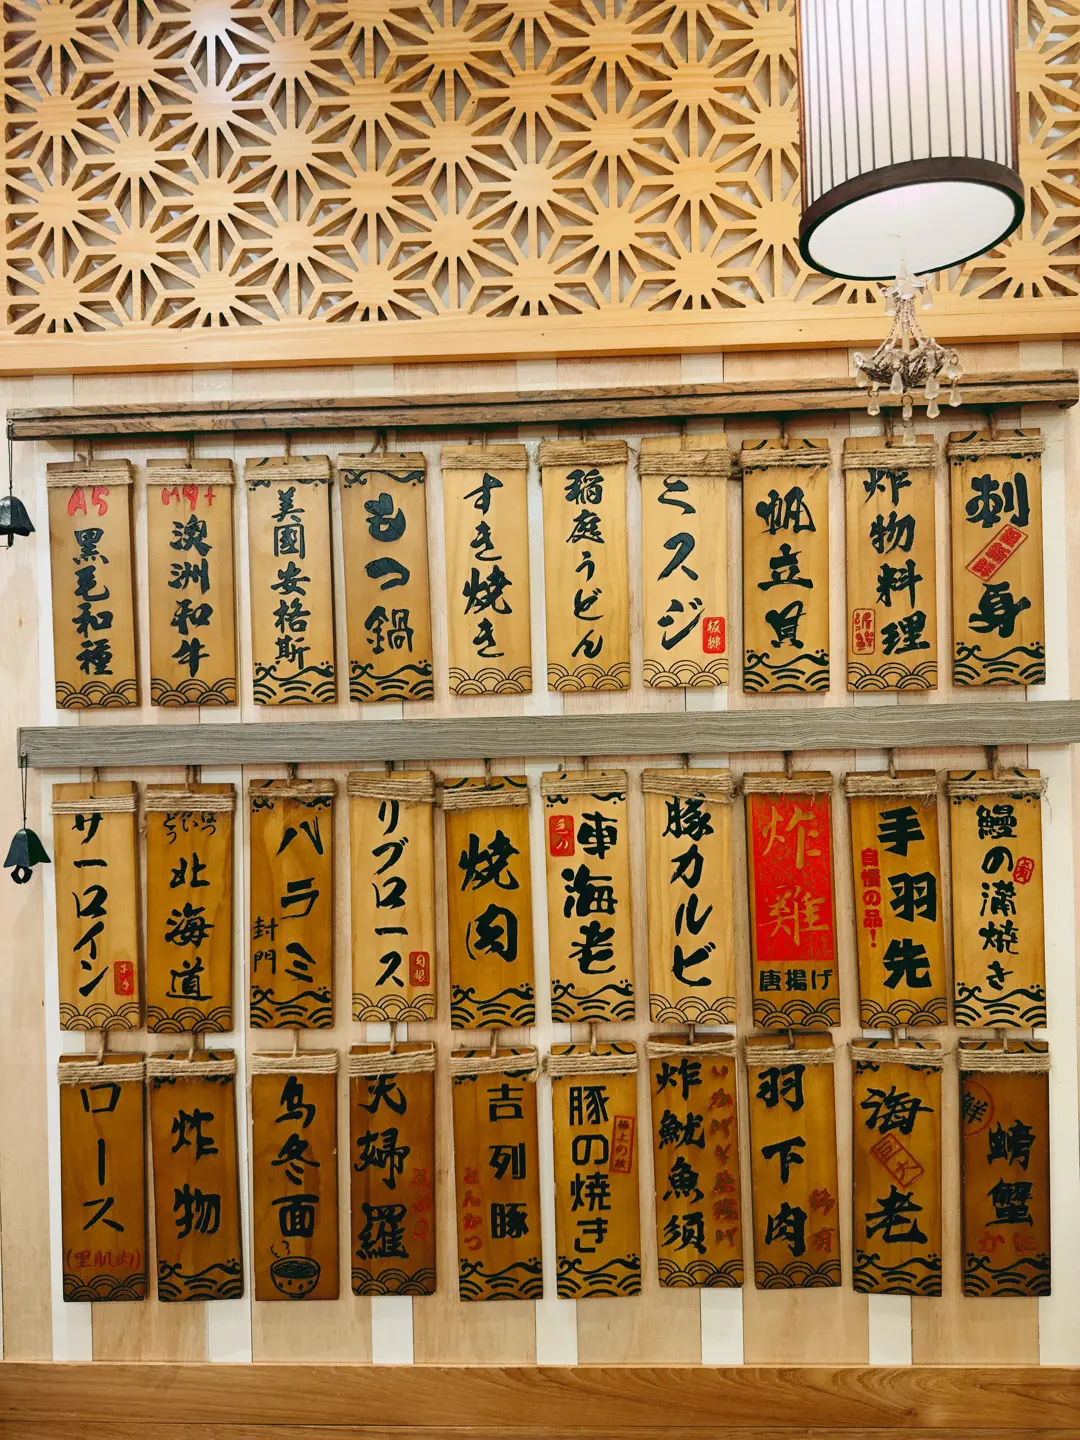 A5
黒毛和種
M9+
澳洲和牛
美國安格斯
もつ鍋
すき焼き
稲庭うどん
ミスジ
帆立貝
炸物料理
刺身
サーロイン
北海道
ハラミ
封門
リブロース
焼肉
車海老
豚カルビ
炸雞
唐揚げ
手羽先
自慢の品！
鰻の蒲焼き
ロース
炸物
烏冬面
天婦羅
吉列豚
とんかつ
豚の焼き
炸魷魚須
羽下肉
海老
巨大
鮮
螃蟹
かに